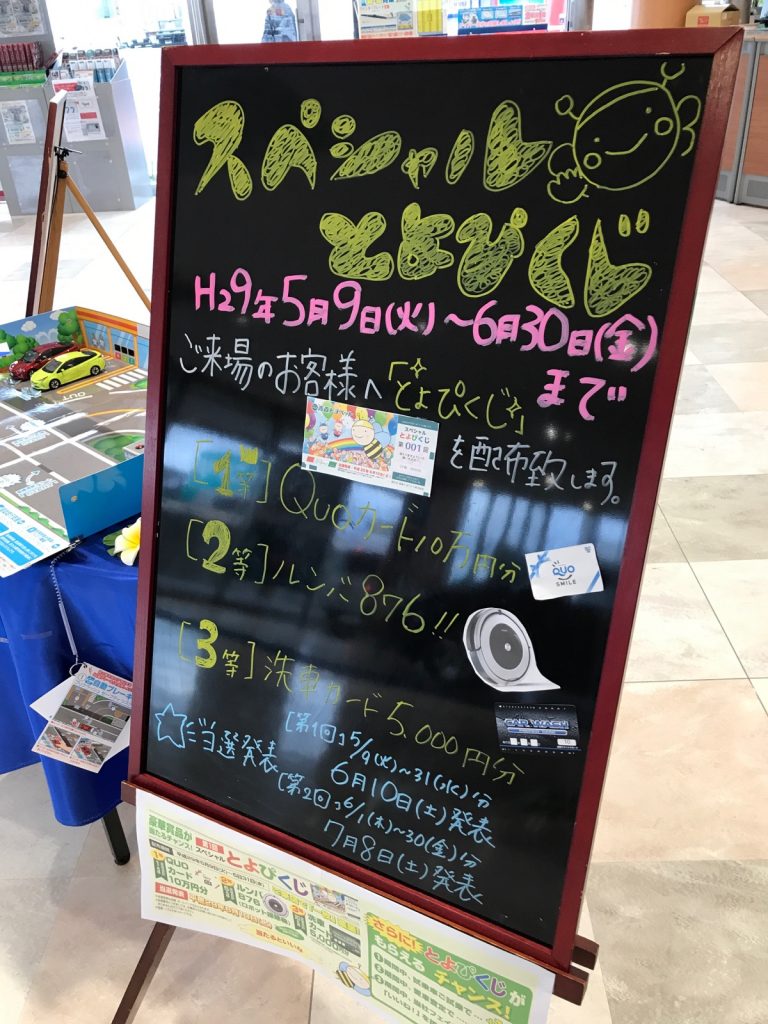 スペシャル
とよぴくじ
H29年5月9日(火)〜6月30日(金)
まで
ご来場のお客様へ「とよぴくじ」
を配布致します。
スペシャル
とよぴくじ
第001回
[1等]QUOカード10万円分
QUO
SMILE
[2等]ルンバ876!!
[3等]洗車カード5,000円分
CAR WASH
☆当選発表
[第1回]5/9(火)〜31(水)分
6月10日(土)発表
[第2回]6/1(木)〜30(金)分
7月8日(土)発表
豪華賞品が
当たるチャンス!
第1回
スペシャル
とよぴくじ
QUO
カード
10万円分
ルンバ
876
洗車
カード
5,000円分
当たるといいね
さらに!とよぴくじが
もらえるチャンス!
OUT